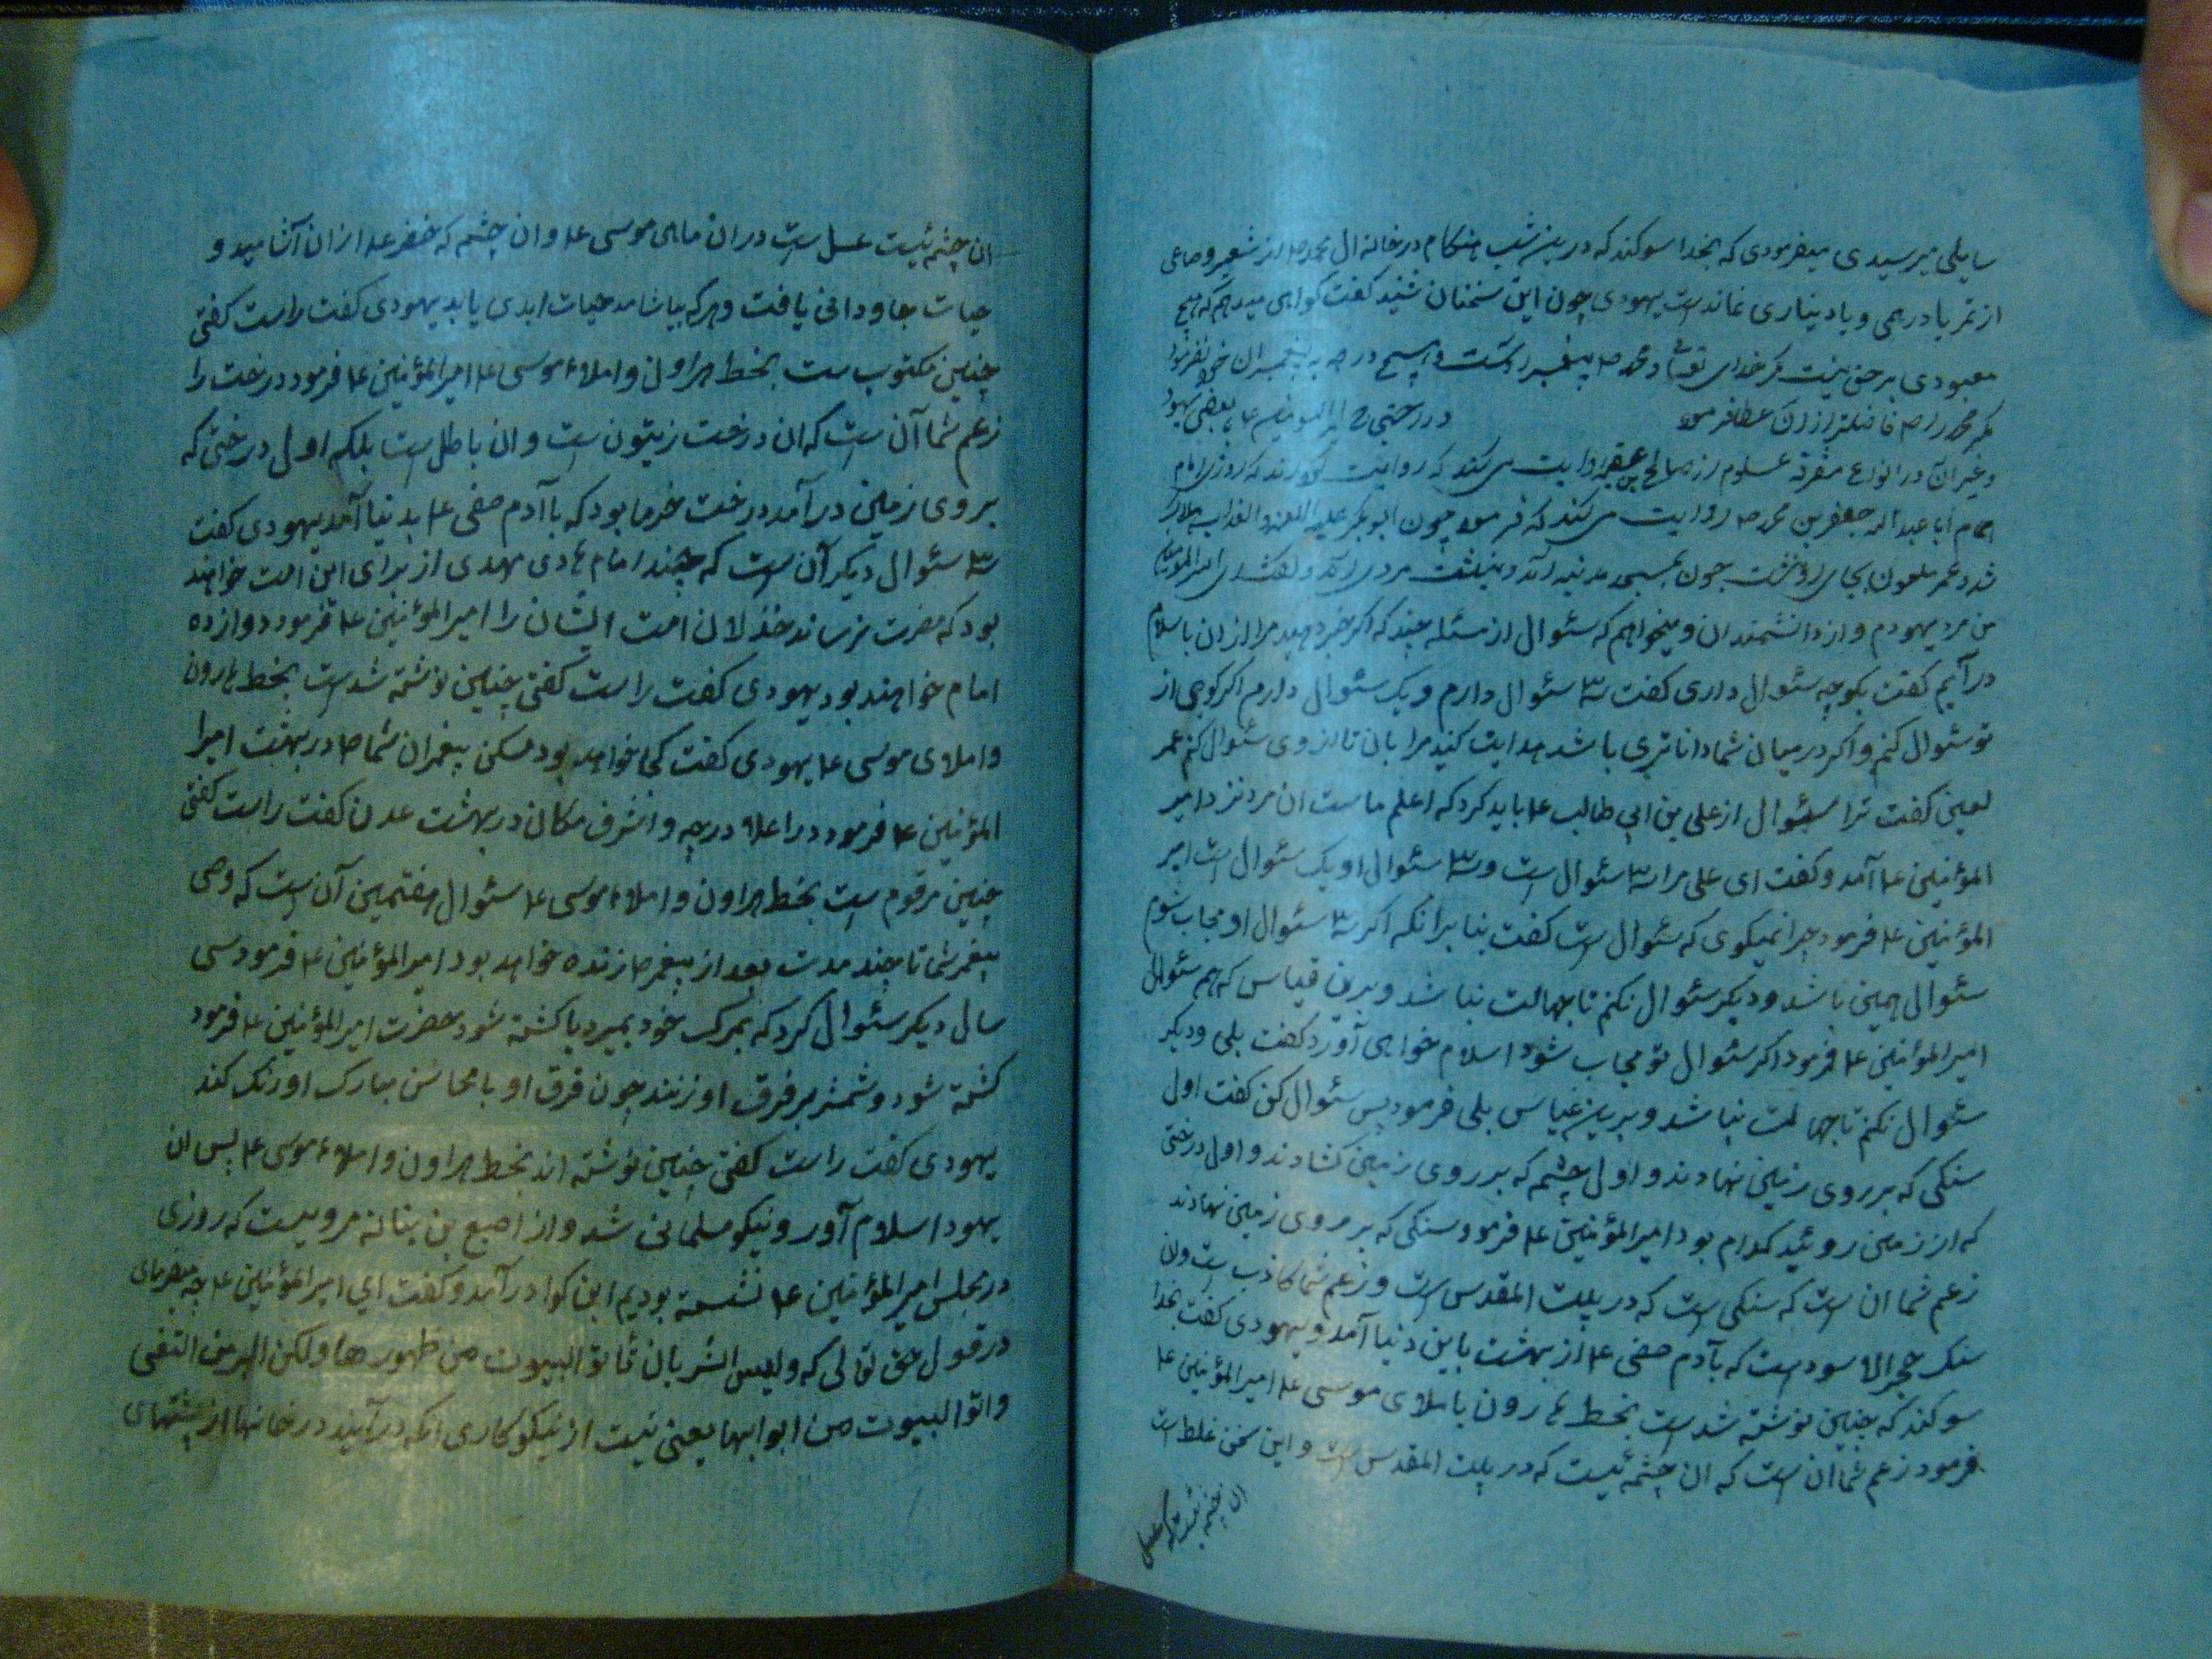 سایلی میرسیدی میفرمودی که بخدا سوکند که درین شب هنکام در خانه ال محمد ص از شعیر و صاعی
از تمر یا درهمی و یا دیناری نماندست یهودی چون این سخنان شنید کفت کواهی میدهم که هیچ
معبودی بر حق نیست مکر خدای تعالی و محمد ص پیغمبر اوست و هیچ درجه به پیغمبران خود نفرمود
مکر محمد را ص فاضلتر از ان عطا فرمود در حتی بعضی یهود
و غیر ان در انواع متفرقه علوم از صالح بن عقبه روایت می کند که روایت کردند که روزی امام
امام ابا عبد اله جعفر بن محمد ص روایت می کند که فرمود چون ابوبکر علیه اللعنه والعذاب هلاک
شد و عمر ملعون بجای او نشست چون بمسجد مدینه آمد و بنشست مردی آمد و کفت
من مرد یهودم و از دانشمندان و میخواهم که سئوال از مسئله چند که اکر خبر دهید مرا از ان باسلام
درآیم کفت بکو چه سئوال داری کفت سه سئوال دارم و یک سئوال دارم اکر کوی از
تو سئوال کنم و اکر در میان شما داناتری باشد هدایت کنید مرا بان تا از وی سئوال کنم عمر
لعین کفت ترا سئوال از علی بن ابی طالب ع باید کرد که اعلم ماست ان مرد نزد امیر
المؤمنین ع آمد و کفت ای علی مرا سه سئوال است و سه سئوال او یک سئوال است امیر
المؤمنین ع فرمود چرا نمیکوی که سئوال است کفت بنا برانکه اکر سه سئوال او مجاب شوم
سئوال همین باشد و دیکر سئوال نکنم تا جهالت نباشد و برین قیاس که هم سئوال
امیرالمؤمنین ع فرمود اکر سئوال تو مجاب شود اسلام خواهی آورد کفت بلی و دیکر
سئوال نکنم تا جهالت نباشد و برین غیاس بلی فرمود پس سئوال کن کفت اول
سنکی که بر روی زمین نهادند و اول چشم که بر روی زمین کشادند و اول درختی
که از زمین روئید کدام بود امیرالمؤمنین ع فرمود سنکی که بر روی زمین نهادند
زعم شما ان است که سنکی است که در بیت المقدس است و زعم شما کاذب است و ان
سنک حجر الاسود است که بآدم صفی ع از بهشت باین دنیا آمد و یهودی کفت بخدا
سوکند که چنین نوشته شدست بخط هارون باملای موسی ع امیرالمؤمنین ع
فرمود زعم شما ان است که ان چشمه ئیست که در بیت المقدس است و این سخن غلط است
ان چشمه ئیست عسل
ان چشمه ئیست عسل است در ان ماهی موسی ع و ان چشم که خضر ع از ان آشامید و
حیات جاودانی یافت و هرکه بیاشامد حیات ابدی یابد یهودی کفت راست کفتی
چنین مکتوب ست بخط هراون و املاء موسی ع امیرالمؤمنین ع فرمود درخت را
زعم شما آن ست که ان درخت زیتون ست و ان باطل ست بلکه اول درختی که
بروی زمین درآمد درخت خرما بود که با آدم صفی ع بدنیا آمد یهودی کفت
سه سئوال دیکر آن است که چند امام هادی مهدی از برای این امت خواهند
بود که مضرت نرساند خذلان امت ایشان را امیرالمؤمنین ع فرمود دوازده
امام خواهند بود یهودی کفت راست کفتی چنین نوشته شدست بخط هارون
و املای موسی ع یهودی کفت کجا خواهد بود مسکن پیغمران شما ص در بهشت امیرا
المؤمنین ع فرمود در اعلا درجه و اشرف مکان در بهشت عدن کفت راست کفتی
چنین مرقوم ست بخط هراون و املاء موسی ع سئوال هفتمین آن ست که وصی
پیغمر شما تا چند مدت بعد از پیغمر ص زنده خواهد بود امیرالمؤمنین ع فرمود سی
سال دیکر سئوال کرد که بمرک خود بمیرد یا کشته شود حضرت امیرالمؤمنین ع فرمود
کشته شود و شمشر بر فرق او زنند چون فرق او با محاسن مبارک او رنک کند
یهودی کفت راست کفتی چنین نوشته اند بخط هراون و املاء موسی ع پس ان
یهود اسلام آور و نیکو مسلمانی شد و از اصبع بن بنانه مرویست که روزی
در مجلس امیرالمؤمنین ع نشسته بودیم ابن کوا درآمد و کفت ای امیرالمؤمنین ع چه میفرمای
در قول حق تعالی که ولیس الشر بان تأتو البیوت من ظهورها ولکن البر من التقی
واتو البیوت من ابوابها یعنی نیست از نیکو کاری انکه درآیند در خانها از پشتهای